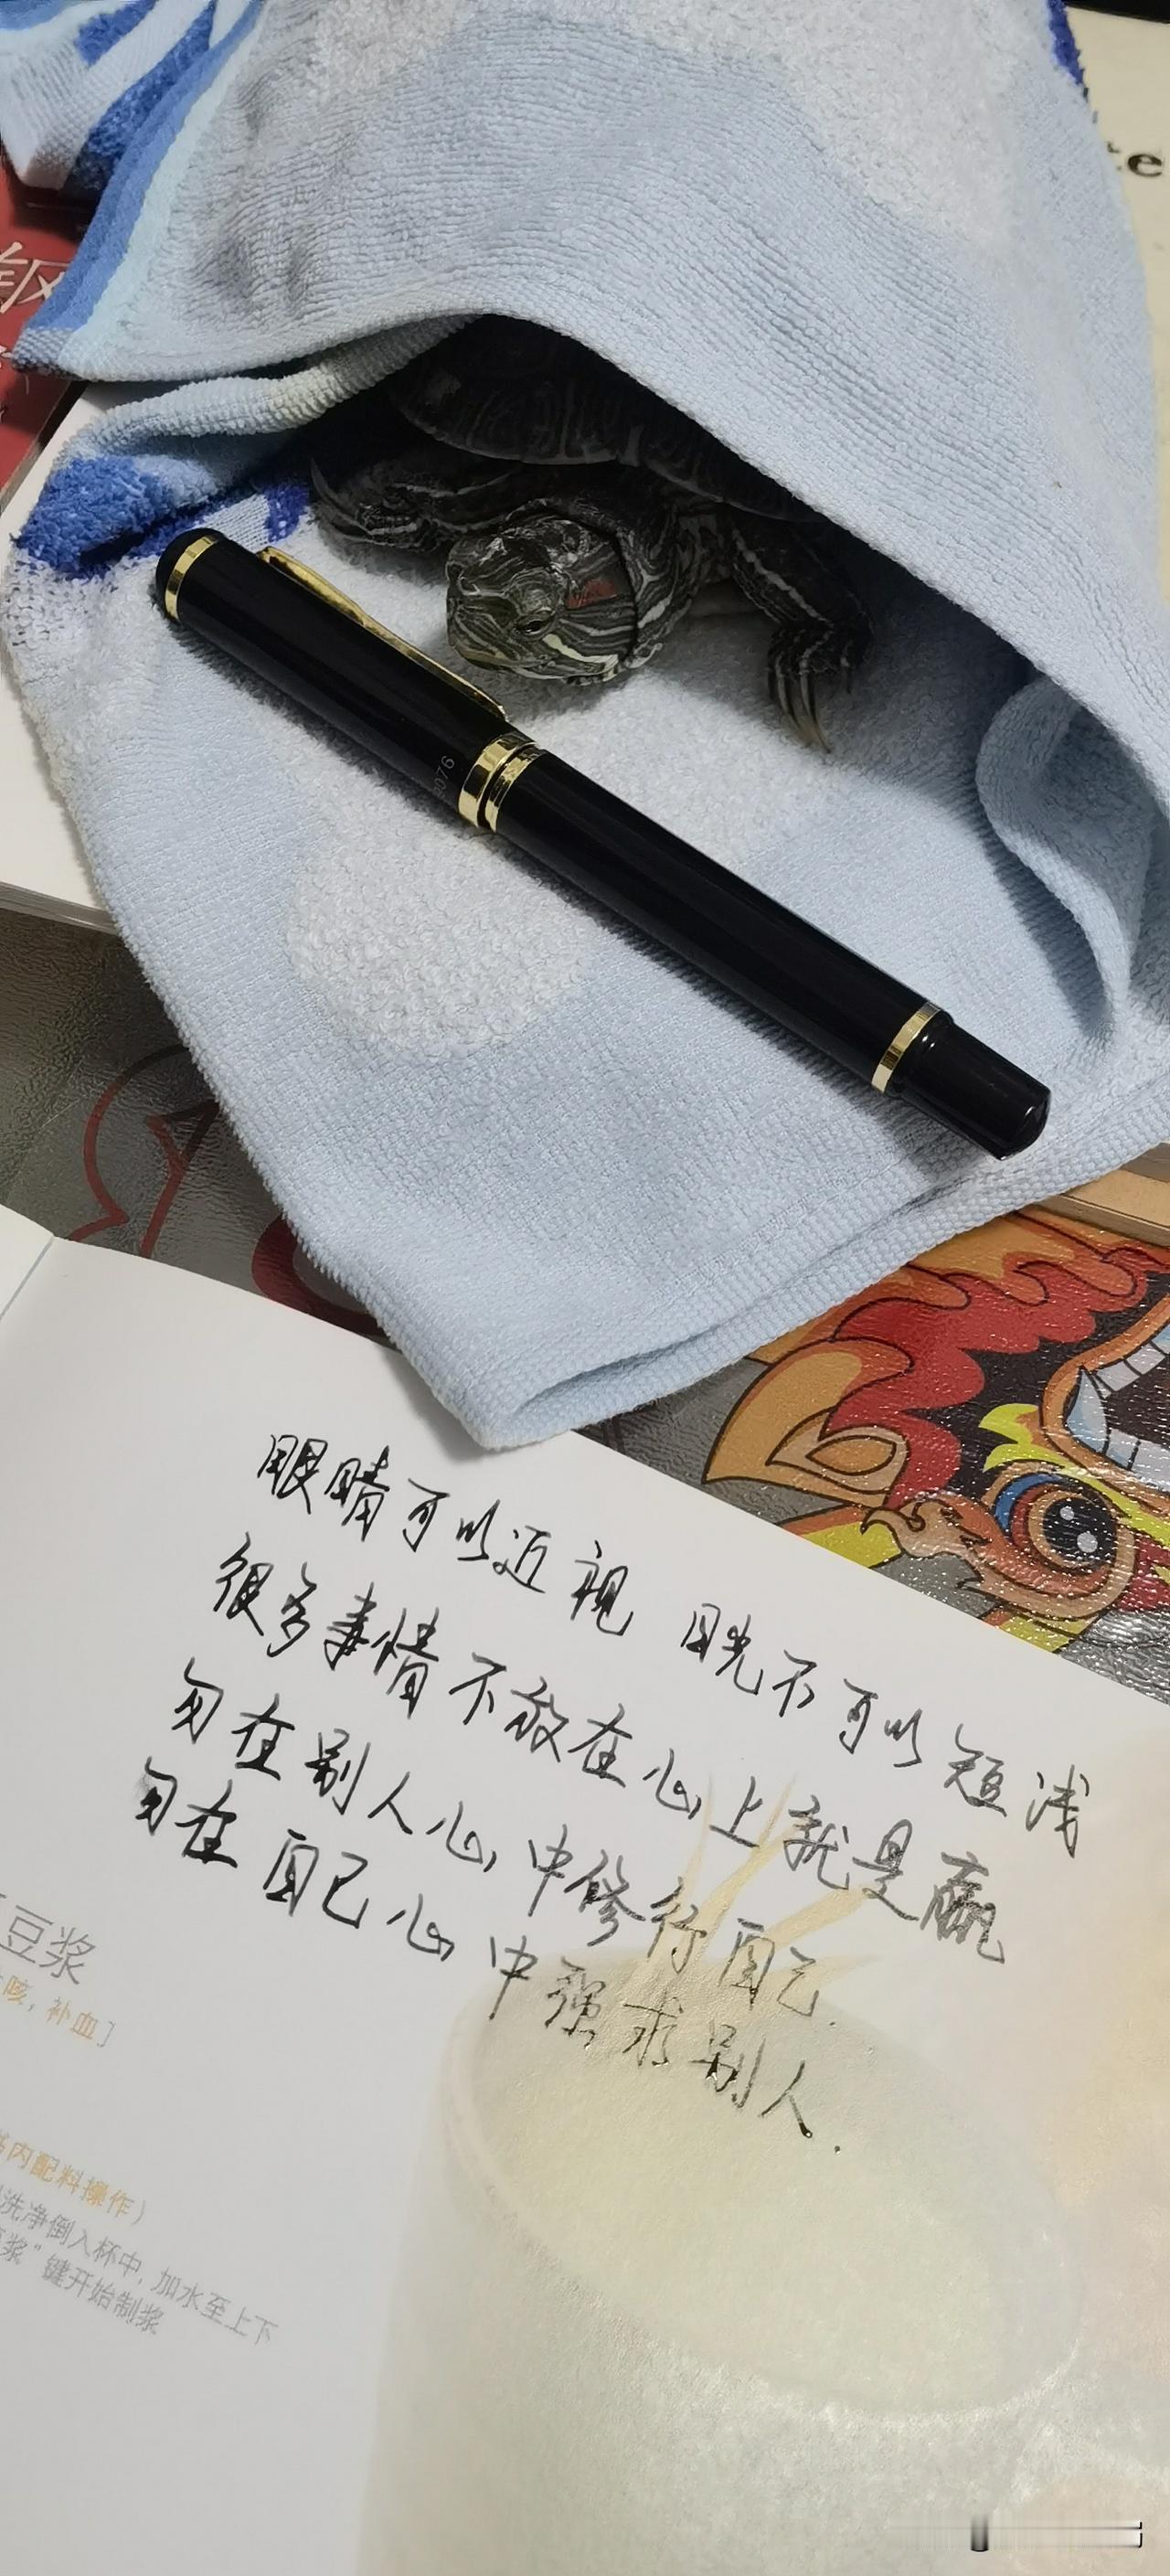 te
076
眼睛可以近视 目光不可以短浅
很多事情不放在心上就是赢
勿在别人心中修行自己.
勿在自己心中强求别人.
豆浆
咳,补血]
内配料操作)
洗净倒入杯中,加水至上下
浆”键开始制浆